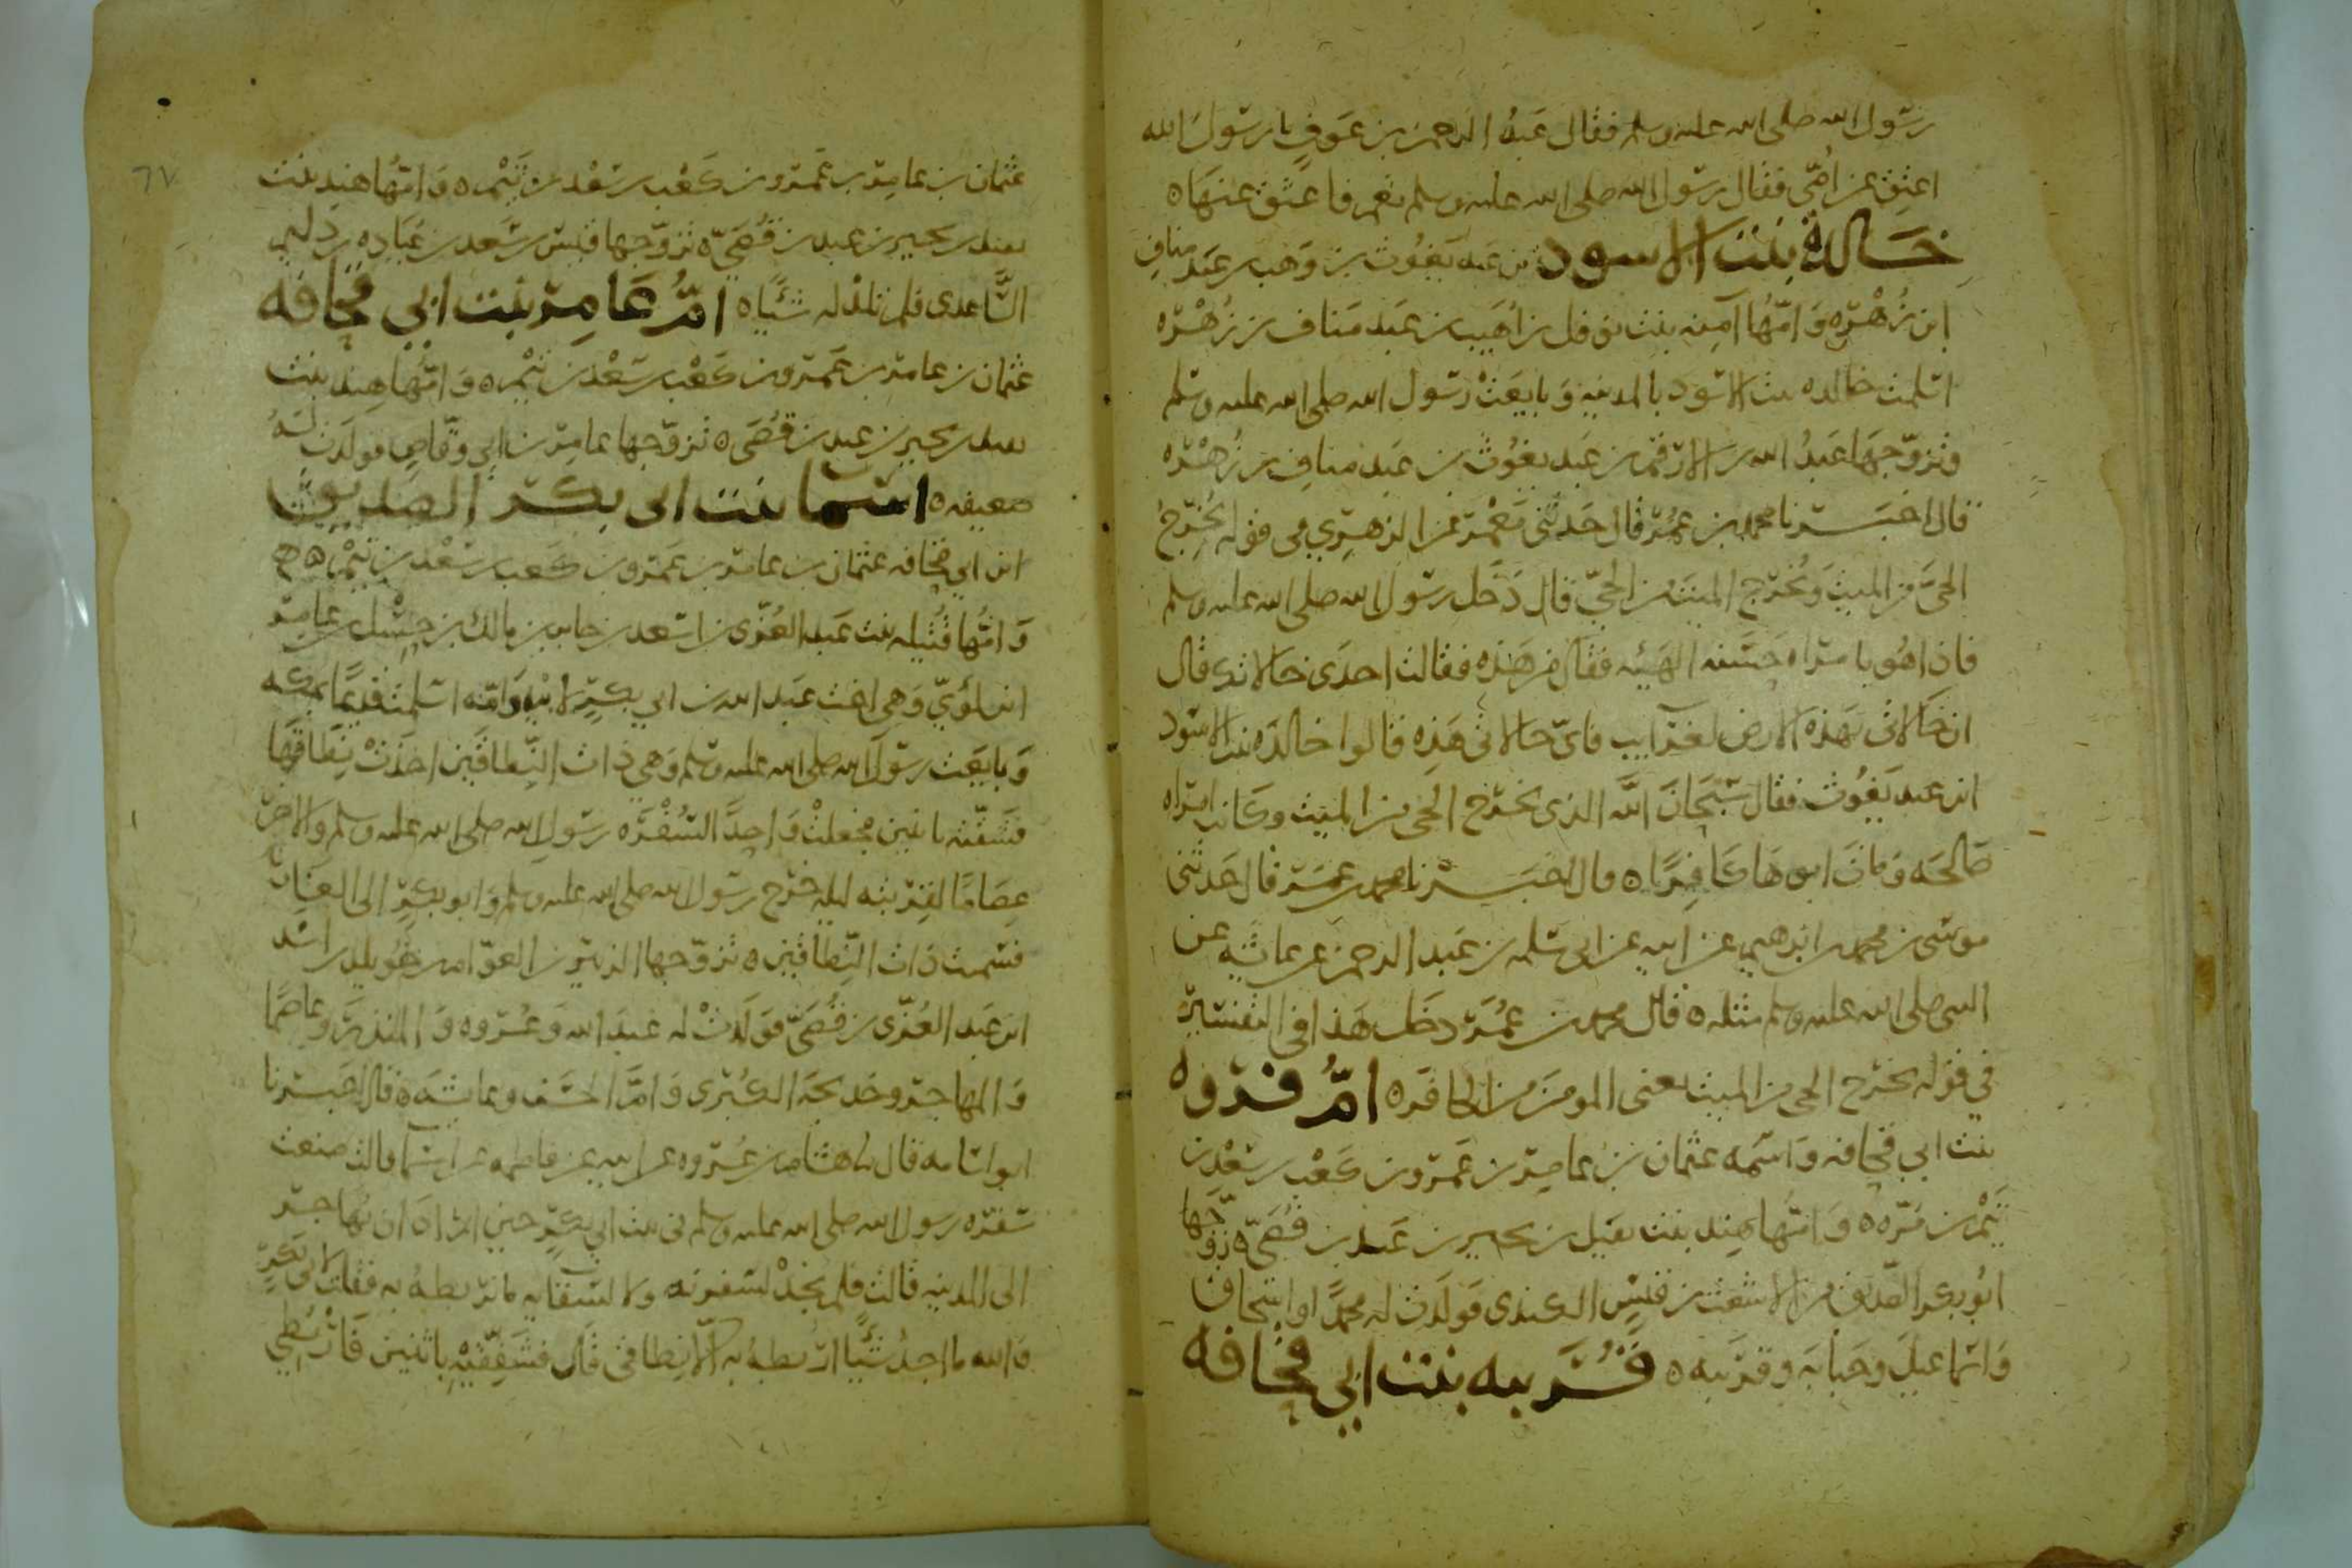 رسول الله صلى الله عليه وسلم فقال عبد الرحمن بن عوف يا رسول الله
اعتق عن امي فقال رسول الله صلى الله عليه وسلم نعم فاعتق عنها ه
خالدة بنت الاسود بن عبد يغوث بن وهب بن عبد مناف
ابن زهره وامها آمنه بنت نوفل بن اهيب بن عبد مناف بن زهره
اسلمت خالده بنت الاسود بالمدينه وبايعت رسول الله صلى الله عليه وسلم
وتزوجها عبد الله بن الارقم بن عبد يغوث بن عبد مناف بن زهره
قال اخبرنا محمد بن عمر قال حدثني معمر عن الزهري في قوله يخرج
الحي من الميت ويخرج الميت من الحي قال دخل رسول الله صلى الله عليه وسلم
فاذا هو بامراه حسنه الهيئه فقال من هذه فقالت احدى خالاتك قال
ان خالاتي بهذه الارض لغرايب فاي خالاتي هذه قالوا خالده بنت الاسود
ابن عبد يغوث فقال سبحان الله الذي يخرج الحي من الميت وكانت امراه
صالحه ومات ابوها كافرا ه قال اخبرنا محمد بن عمر قال حدثني
موسى بن محمد بن ابرهيم عن ابيه عن ابي سلمه بن عبد الرحمن عن عائشه عن
النبي صلى الله عليه وسلم مثله ه قال محمد بن عمر دخل هذا في التفسير
في قوله يخرج الحي من الميت يعني المومن من الكافر ه ام فروه
بنت ابي قحافه واسمه عثمان بن عامر بن عمرو بن كعب بن سعد بن
تيم بن مره ه وامها هند بنت نقيل بن بجير بن عبد بن قصي ه زوجها
ابو بكر الصديق من الاشعث بن قيس الكندي فولدت له محمدا واسحاق
واسماعيل وحبابه وقريبه ه قريبه بنت ابي قحافه
عثمان بن عامر بن عمرو بن كعب بن سعد بن تيم ه وامها هند بنت
نقيد بن بجير بن عبد بن قصي ه تزوجها قيس بن سعد بن عباده بن دليم
الساعدي فلم تلد له شيا ه ام عامر بنت ابي قحافه
عثمان بن عامر بن عمرو بن كعب بن سعد بن تيم ه وامها هند بنت
نقيد بن بجير بن عبد بن قصي ه تزوجها عامر بن ابي وقاص فولدت له
ضعيفه ه اسما بنت ابي بكر الصديق
ابن ابي قحافه عثمان بن عامر بن عمرو بن كعب بن سعد بن تيم ه
وامها قتيله بنت عبد العزى بن اسعد بن جابر بن مالك بن حسل بن عامر
ابن لؤي وهي اخت عبد الله بن ابي بكر لابيه وامه اسلمت قديما بمكه
وبايعت رسول الله صلى الله عليه وسلم وهي ذات النطاقين اخذت نطاقها
فشقته باثنين فجعلت واحدا لسفره رسول الله صلى الله عليه وسلم والاخر
عصاما لقربته ليله خرج رسول الله صلى الله عليه وسلم وابو بكر الى الغار
فسميت ذات النطاقين ه تزوجها الزبير بن العوام بن خويلد بن اسد
ابن عبد العزى بن قصي فولدت له عبد الله وعروه والمنذر وعاصما
والمهاجر وخديجه الكبرى وام الحسن وعائشه ه قال اخبرنا
ابو اسامه قال نا هشام بن عروه عن ابيه عن فاطمه عن اسما قالت صنعت
سفره رسول الله صلى الله عليه وسلم في بيت ابي بكر حين اراد ان يهاجر
الى المدينه قالت فلم نجد لسفرته ولا لسقايه ما نربطه به فقلت لابي بكر
والله ما اجد شيا اربطه به الا نطاقي قال فشقيه باثنين فاربطي